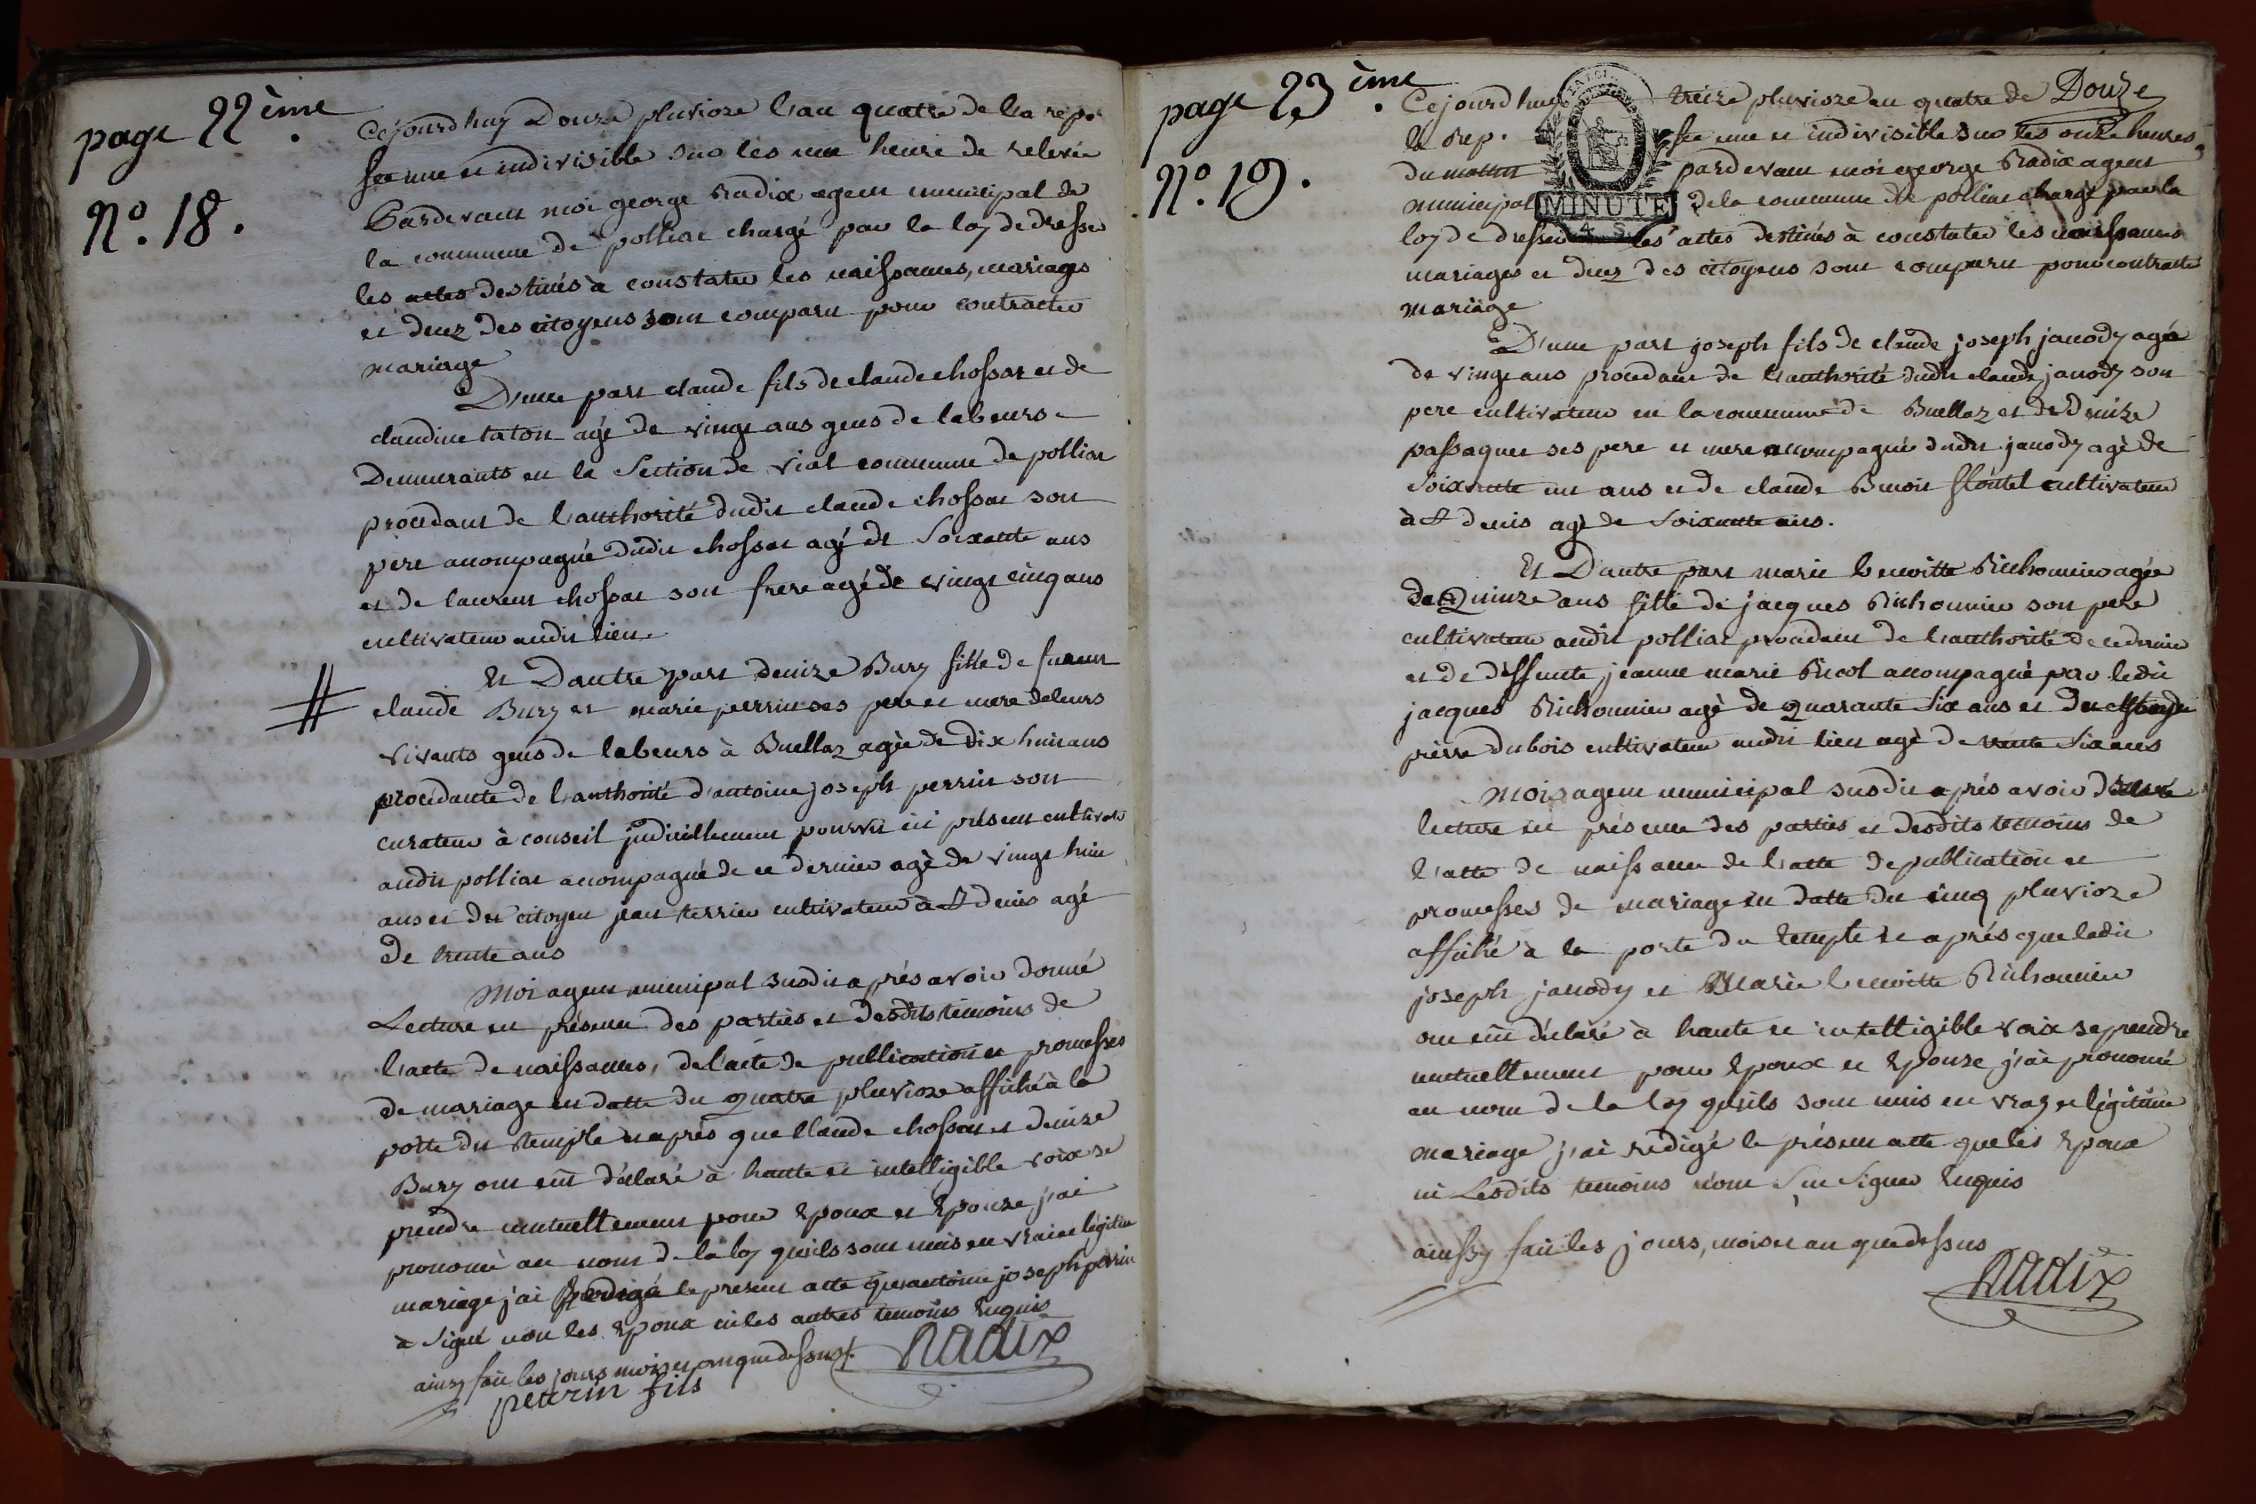 page 22ème.
N.º 18.
Cejourdhuy Douze pluvioze l'an quatre de la rép.
fse une et indivisible sur les une heure de relevée
Pardevant moi george Radix agent municipal de
la commune de polliat chargé par la loy de dresser
les actes destinés à constater les naissances, mariages
et decez des citoyens sont comparu pour contracter
mariage
D'une part claude fils de claude chossat et de
claudine taton agé de vingt ans gens de labeurs
Demeurants en la Section de vial commune de polliat
procedant de l'authorité dudit claude chossat son
pere acompagné dudit chossat agé de Soixante ans
et de laurent chossat son frere agé de vingt cinq ans
cultivateur audit lieu
Et D'autre part denize Bury fille de
claude Bury et marie perrin ses pere et mere de leurs
vivants gens de labeurs à Buellaz agée de dix huit ans
procédante de l'authorité d'antoine joseph perrin son
curateur à conseil judiciellement pourvu ici présent cultivateur
audit polliat acompagné de ce dernier agé de vingt huit
ans et du citoyen jean terrier cultivateur à St denis agé
de trente ans
Moi agent municipal susdit après avoir donné
Lecture en présence des parties et desdits témoins de
l'acte de naissances, de l'acte de publication et promesses
de mariage en datte du quatre pluvioze affiché à la
porte du temple et après que Claude chossat et denize
Bury ont eut déclaré à haute et intelligible voix se
prendre mutuellement pour Epoux et Epouze j'ai
prononcé au nom de la loy quils sont unis en vrai et légitime
mariage j'ai Redigé le présent acte que antoine joseph perrin
à Signé non les Epoux ni les autres temoins Enquis
ainsy fait les jours mois et an que dessus
Radix
perrin fils
page 23ème.
N.º 19.
Cejourdhuy treize pluvioze an quatre de Douze
la Rep. fse une et indivisible sur les onze heures
du mattin pardevant moi george Radix agent
municipal de la commune de polliat chargé par la
MINUTE
4. S.
loy de dresser les actes destinés à constater les naissances
mariages et decez des citoyens sont comparu pour contracter
mariage
D'une part joseph fils de claude joseph janody agé
de vingt ans procedant de l'authorité dudit claude janody son
pere cultivateur en la commune de Buellaz et de denize
passaquet ses pere et mere acompagné dudit janody agé de
Soixante un ans et de claude Benoit cultivateur
à St denis agé de Soixante ans.
Et D'autre part marie benoitte Richonnier agée
de Quinze ans fille de jacques Richonnier son pere
cultivateur audit polliat procedant de l'authorité de ce dernier
et de deffunte jeanne marie Picot acompagné par ledit
jacques Richonnier agé de quarante Six ans et du citoyen
pierre dubois cultivateur audit lieu agé de trente Six ans
Moi agent municipal susdit après avoir donné
lecture en présence des parties et desdits temoins de
l'acte de naissance de l'acte de publication et
promesses de mariage en datte du cinq pluvioze
affiché à la porte du temple et après que ledit
joseph janody et Marie benoitte Richonnier
ont eut déclaré à haute et intelligible voix se prendre
mutuellement pour Epoux et Epouze j'ai prononcé
au nom de la loy quils sont unis en vray et légitime
mariage j'ai redigé le présent acte que les Epoux
ni Lesdits temoins n'ont Su Signer Enquis
ainssy fait les jours, mois et an que dessus
Radix